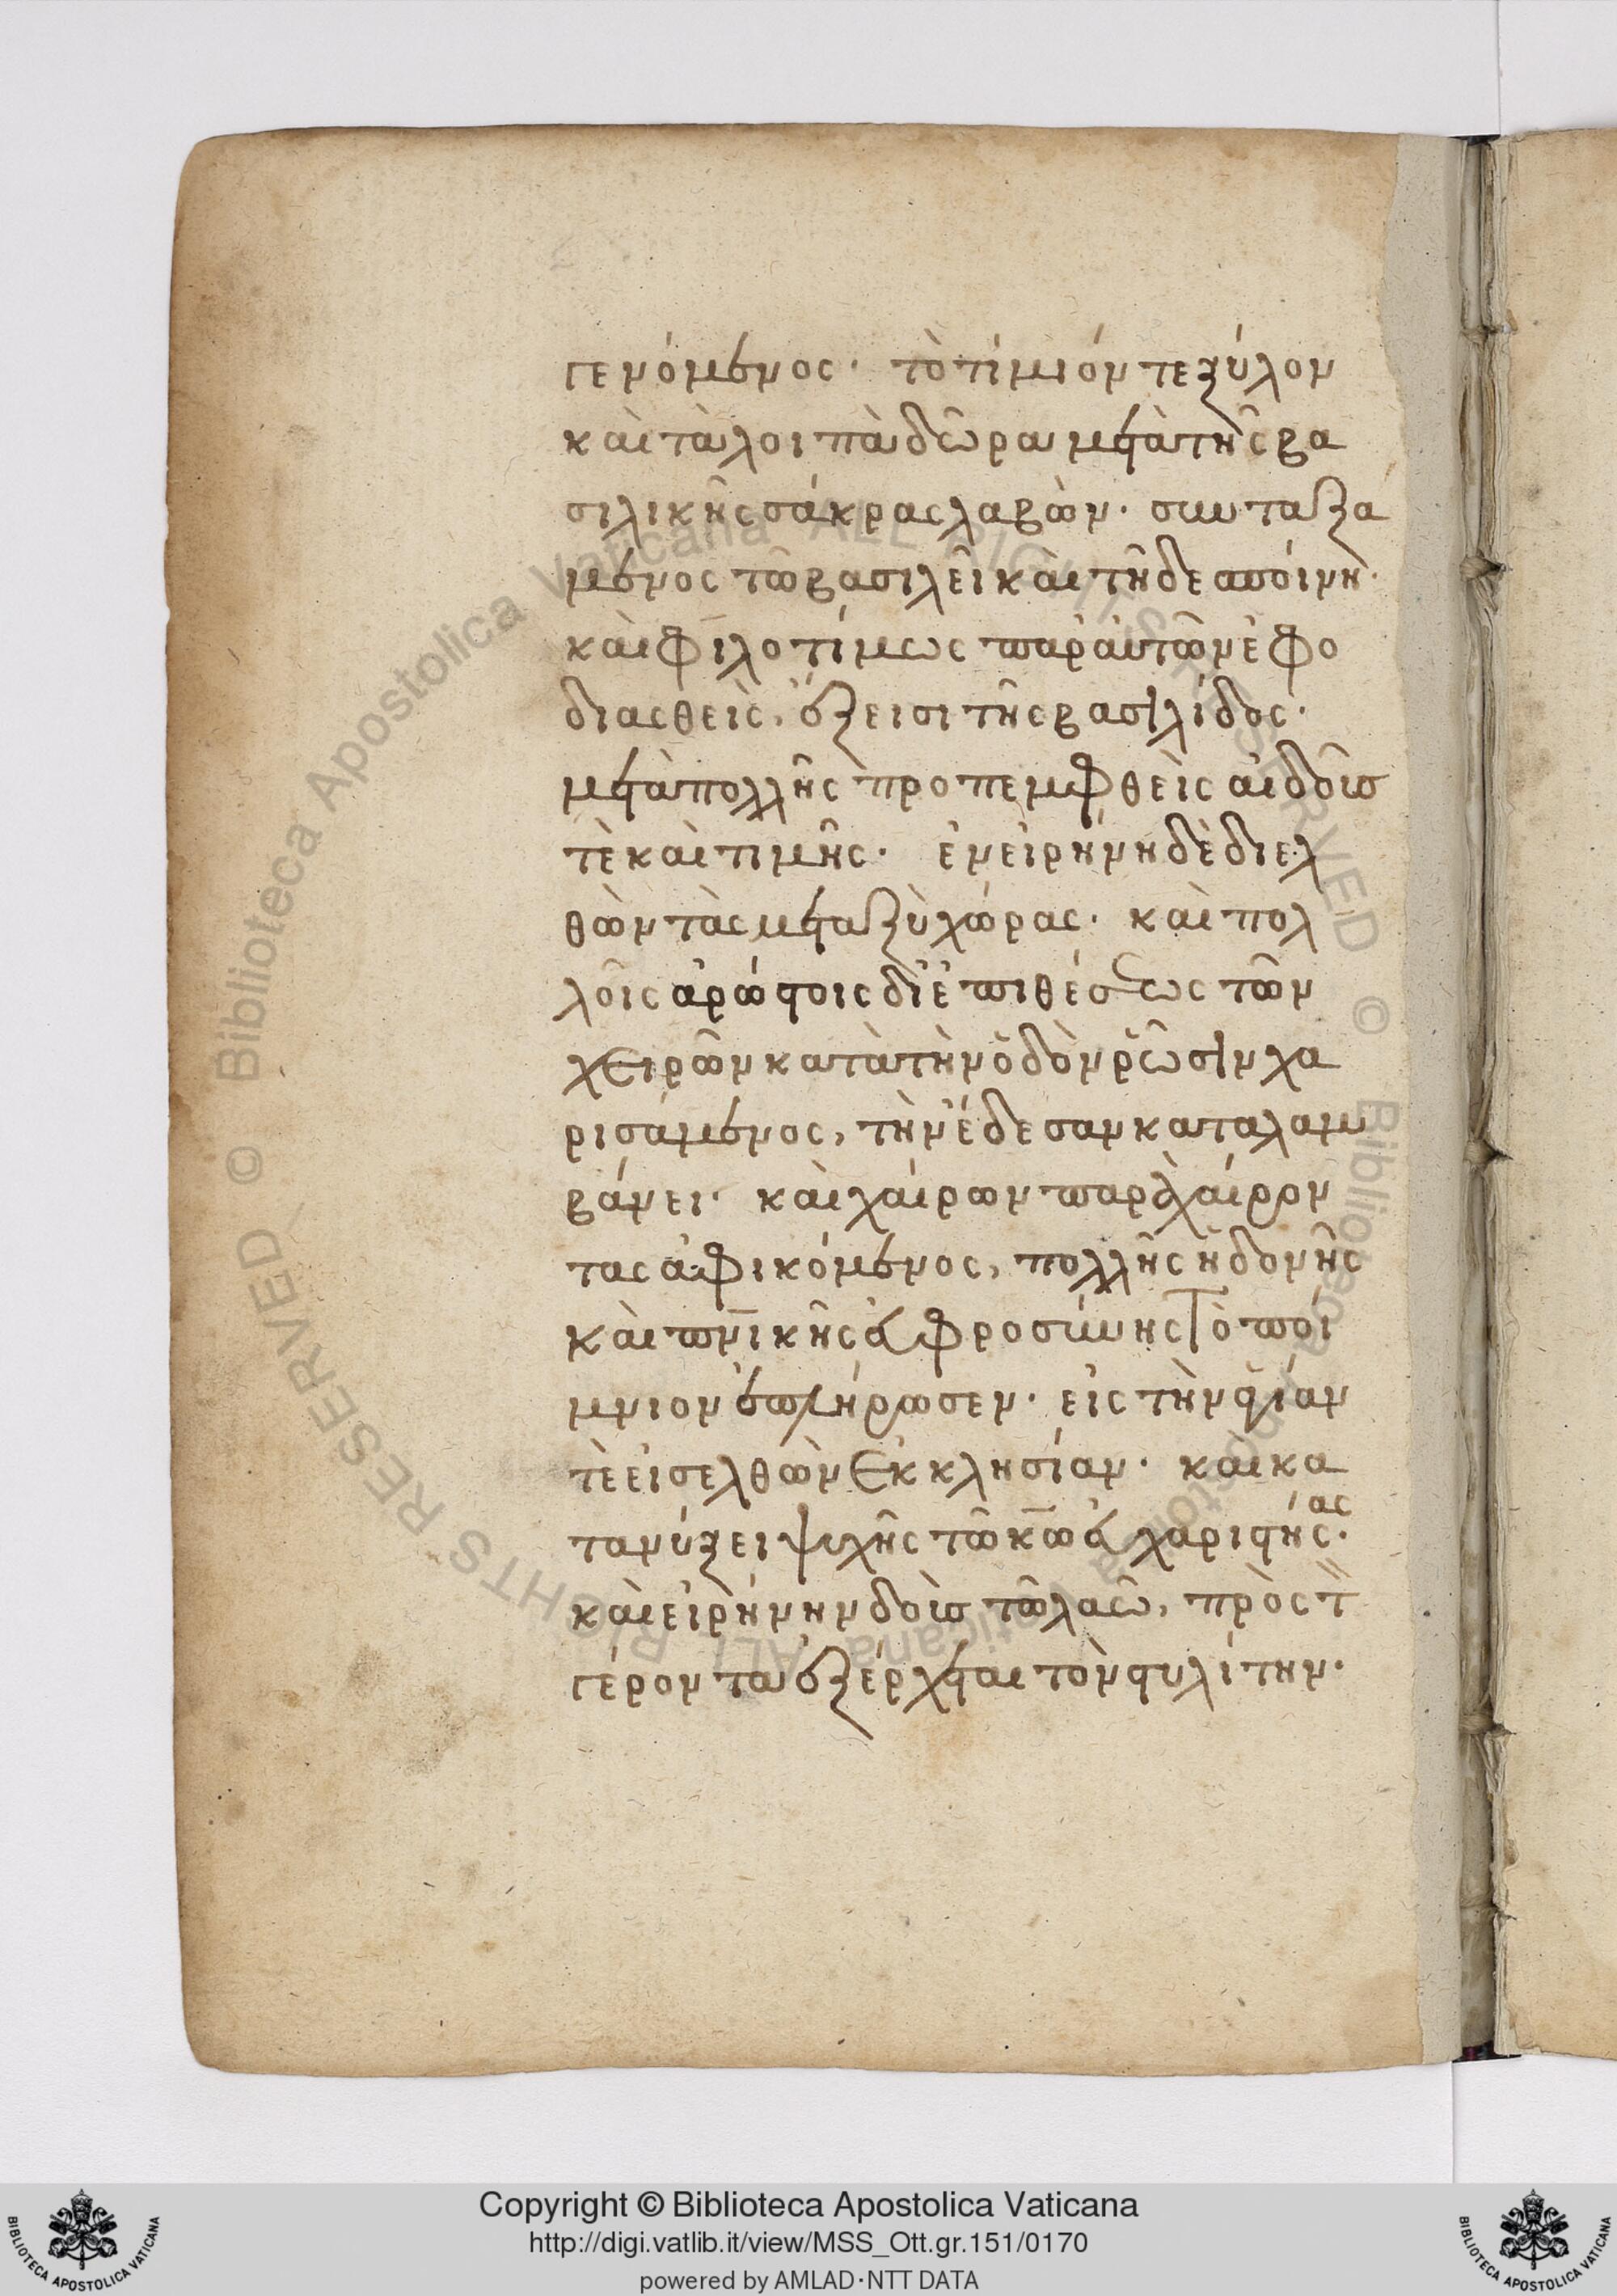 γενόμενος· τὸ τίμιόν τε ξύλον
καὶ τὰ λοιπὰ δῶρα μετὰ τῆς βα
σιλικῆς σάκρας λαβὼν· συνταξά
μενος τῶ βασιλεῖ καὶ τῆ δεσποίνη·
καὶ φιλοτίμως παρ' αὐτῶν ἐφο
διασθεὶς, ἔξεισι τῆς βασιλίδος·
μετὰ πολλῆς προπεμφθεὶς αἰδοῦς
τὲ καὶ τιμῆς· ἐν εἰρήνη δὲ διελ
θὼν τὰς μεταξὺ χώρας· καὶ πολ
λοῖς ἀρώστοις δι' ἐπιθέσεως τῶν
χειρῶν κατὰ τὴν ὁδὸν ῥῶσιν χα
ρισάμενος, τὴν ἔδεσαν καταλαμ
βάνει· καὶ χαίρων παρὰ χαίρον
τας ἀφικόμενος, πολλῆς ἡδονῆς
καὶ πνικῆς εὐφροσύνης τὸ ποί
μνιον ἐπλήρωσεν· εἰς τὴν ἁγίαν
τὲ εἰσελθὼν ἐκκλησίαν· καὶ κα
τανύξει ψυχῆς τῶ κω εὐχαριστήσας·
καὶ εἰρήνην δοὺς τῶ λαῶ, πρὸς τ
γέροντα ἐξέρχεται τὸν στυλίτην·
Copyright © Biblioteca Apostolica Vaticana
http://digi.vatlib.it/view/MSS_Ott.gr.151/0170
powered by AMLAD·NTT DATA
BIBLIOTECA APOSTOLICA VATICANA
BIBLIOTECA APOSTOLICA VATICANA
© Biblioteca Apostolica Vaticana ALL RIGHTS RESERVED
© Biblioteca Apostolica Vaticana ALL RIGHTS RESERVED